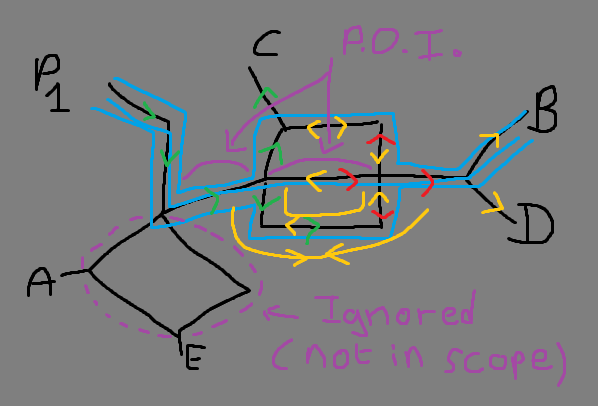 C
P.O.I.
P
1
B
D
A
E
Ignored
(not in scope)